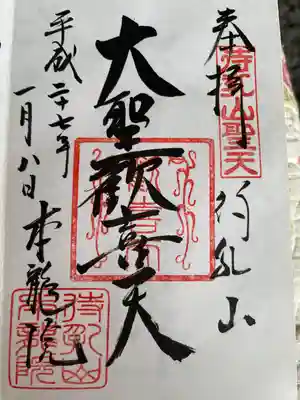 奉拝
待乳山聖天
待乳山
大聖歓喜天
平成二十七年
一月八日
本龍院
待乳山本龍院